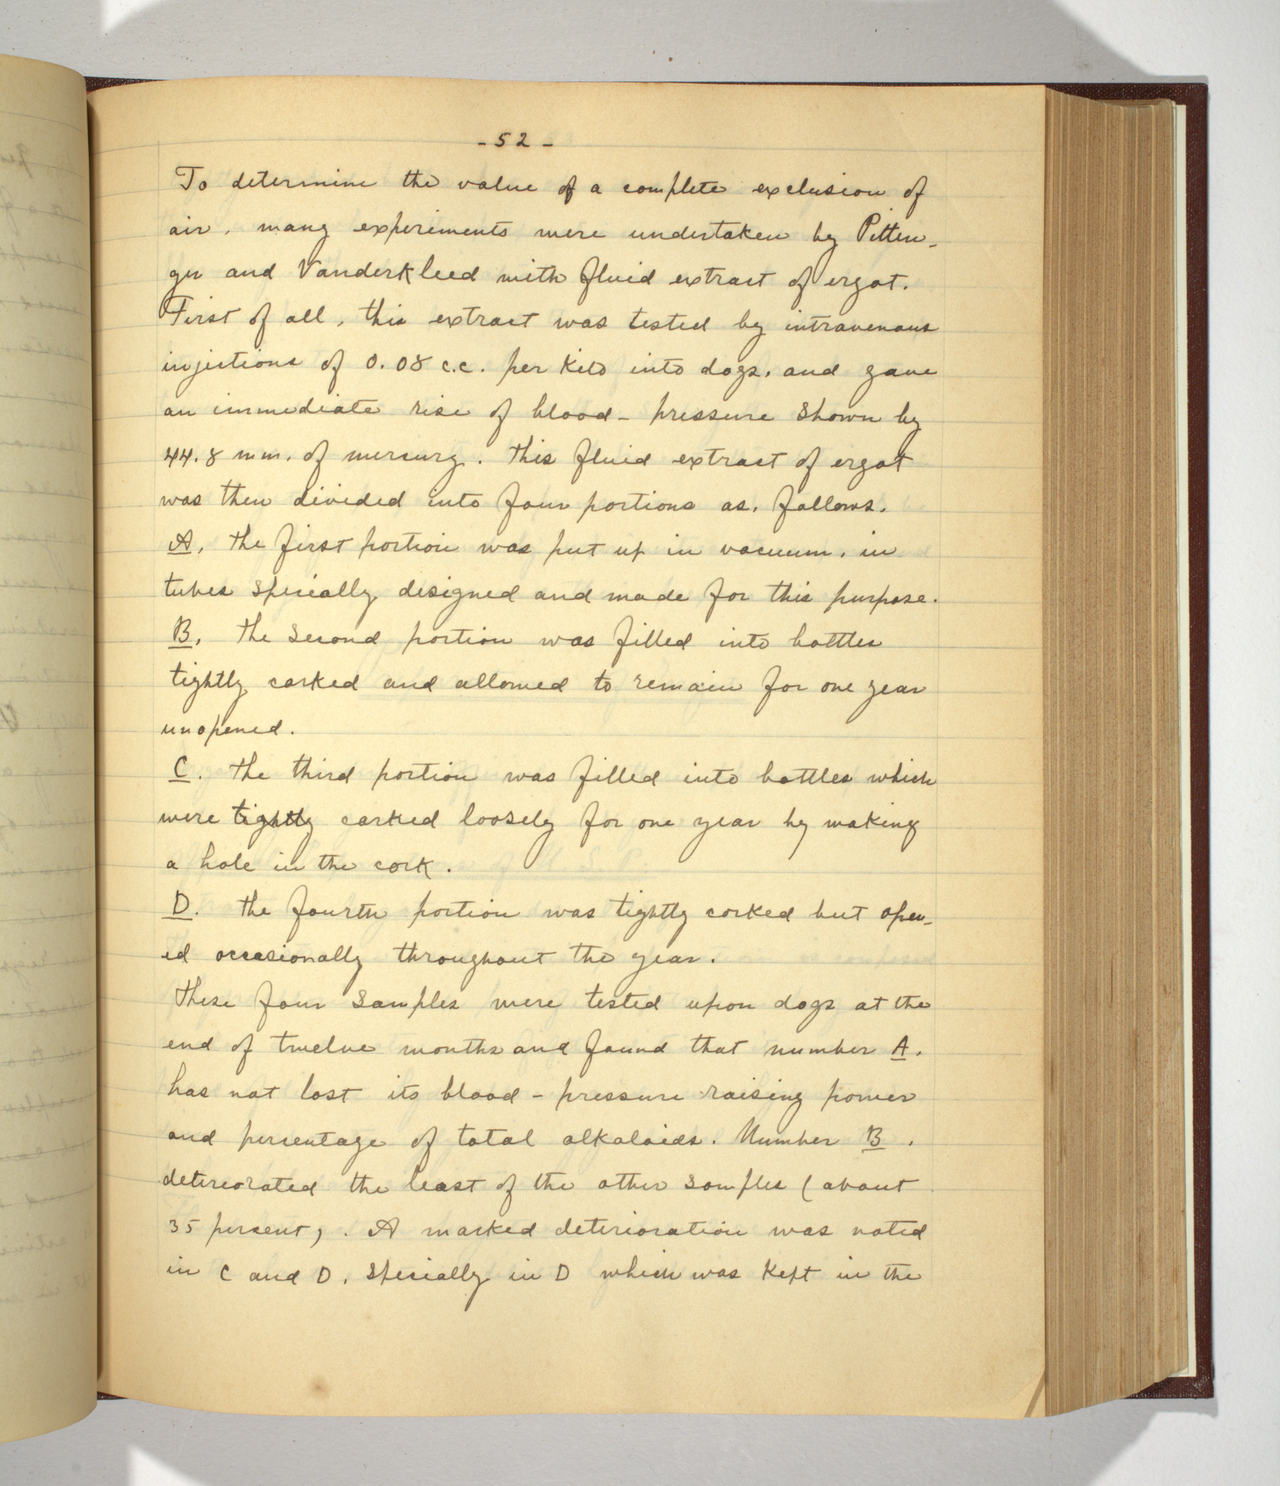 - 52 -
To determine the value of a complete exclusion of
air, many experiments were undertaken by Pitten-
ger and Vanderkleed with fluid extract of ergot.
First of all, this extract was tested by intravenous
injections of 0.08 c.c. per kilo into dogs, and gave
an immediate rise of blood-pressure shown by
44.8 mm. of mercury. This fluid extract of ergot
was then divided into four portions as, follows.
A. The first portion was put up in vacuum, in
tubes specially designed and made for this purpose.
B. The second portion was filled into bottles
tightly corked and allowed to remain for one year
unopened.
C. The third portion was filled into bottles which
were tightly corked loosely for one year by making
a hole in the cork.
D. The fourth portion was tightly corked but open-
ed occasionally throughout the year.
These four samples were tested upon dogs at the
end of twelve months and found that number A.
has not lost its blood-pressure raising power
and percentage of total alkaloids. Number B.
deteriorated the least of the other samples (about
35 percent). A marked deterioration was noted
in C and D, specially in D which was kept in the